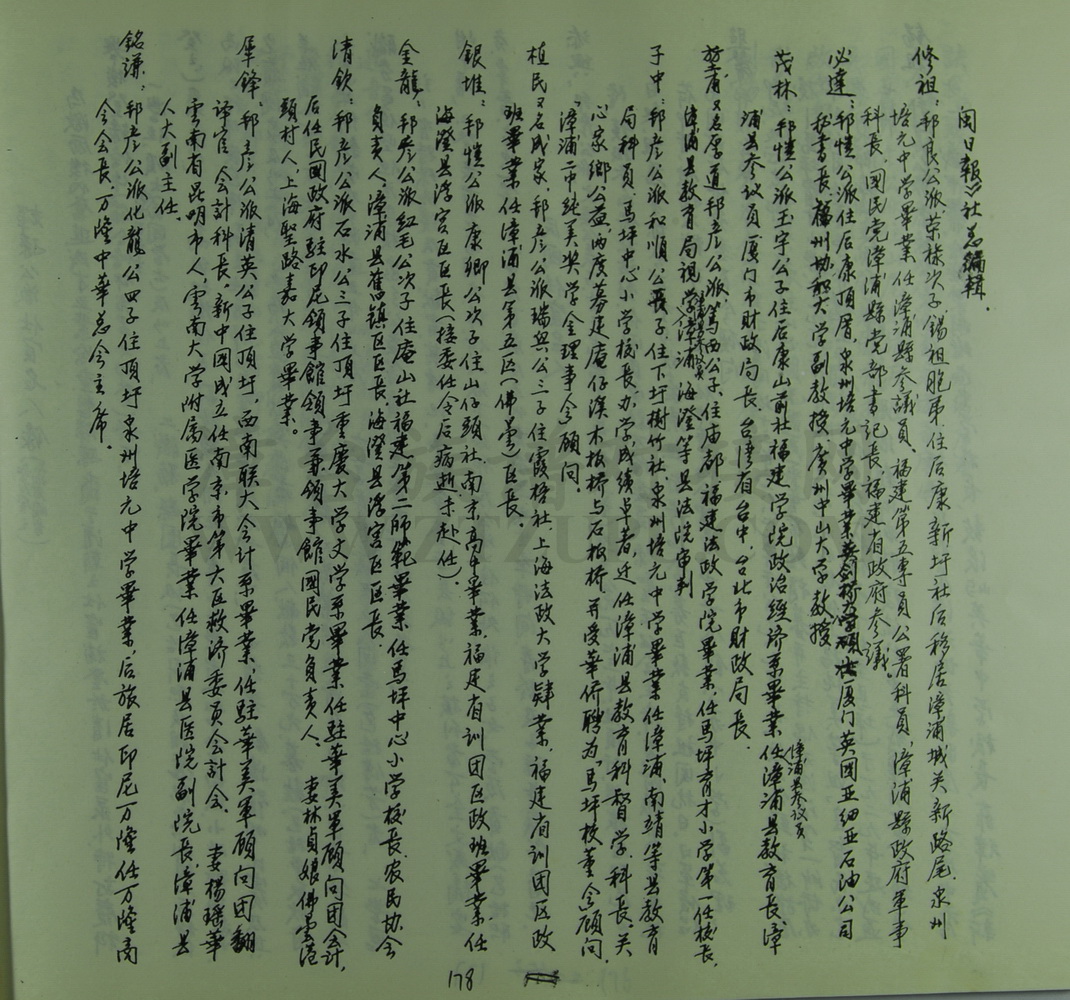 闽日報》社总編輯.
修祖：邦良公派荣禄次子.錫祖胞弟.住后康新圩社后移居漳浦城关新路尾.泉州
培元中学畢業.任漳浦縣参議員、福建第五專員公署科員、漳浦縣政府軍事
科長、国民党漳浦縣党部書記長、福建省政府参議。
必達：邦愷公派住后康頂厝.泉州培元中学畢業英剑桥大学碩士厦门英国亚细亚石油公司
秘書長.福州协和大学副教授.广州中山大学教授
茂林：邦愷公派玉宇公子住后康山前社福建学院政治经济系畢業任漳浦县教育長.漳
漳浦县参议员
浦县参议員.厦门市財政局長.台湾省台中.台北市財政局長.
又名厚道邦彦公派.篤西公子.住庙都.福建法政学院畢業.任馬坪育才小学第一任校長.
漳浦县教育局視学漳浦.海澄等县法院审判
子中：邦彦公派和順公長子.住下圩樹竹社.泉州培元中学畢業任漳浦、南靖等县教育
局科員.馬坪中心小学校長.办学成绩卓著.迁任漳浦县教育科督学.科長.关
心家鄉公益.两度募建庵仔溪木板桥与石板桥.并受華侨聘为"馬坪校董会"顧问.
"漳浦二中純美奖学金理事会"顧问.
植民又名成家.邦彦公派瑞與公三子住霞梧社.上海法政大学肄業.福建省訓团区政
班畢業任漳浦县第五区(佛曇)区長.
銀堆：邦愷公派康卿公次子住山仔頭社.南京高中畢業.福建省訓团区政班畢業.任
海澄县浮宫区区長(接委任令后病逝未赴任).
金龍：邦彦公派红毛公次子住庵山社福建第二師範畢業.任馬坪中心小学校長.农民协会
負責人.漳浦县旧鎮区区長.海澄县浮宫区区長.
清欽：邦彦公派石水公三子住頂圩重慶大学文学系畢業任駐華美軍顧问团会計.
后任民國政府駐印尼領事館領事兼領事館國民党負責人.　妻林貞娘佛曇港
頭村人.上海聖路嘉大学畢業。
犀鋒：邦彦公派清英公子住頂圩.西南联大会计系畢業.任駐華美軍顾问团翻
译官.会計科長.新中國成立任南京市第大区救济委员会計会.　妻楊瑶華
雲南省昆明市人.雲南大学附属医学院畢業任漳浦县医院副院長.漳浦县
人大副主任.
銘謙：邦彦公派化龍公四子住頂圩泉州培元中学畢業.后旅居印尼万隆任万隆商
会会長.万隆中華总会主席.
178